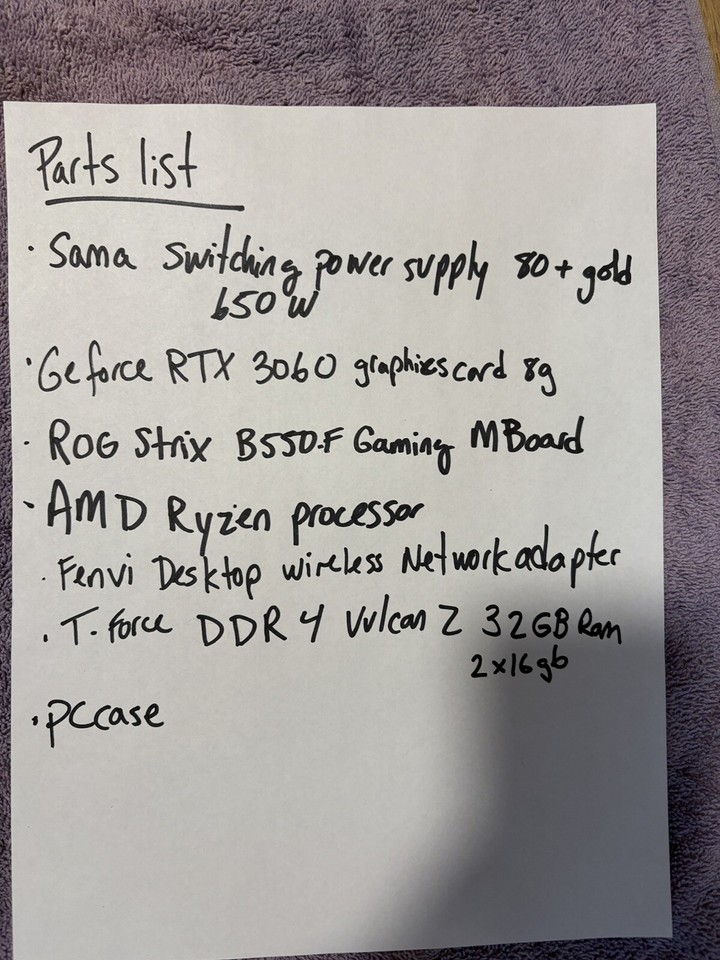 Parts list
· Sama switching power supply 80+ gold
650 W
· Geforce RTX 3060 graphixscard 8g
· ROG Strix B550-F Gaming MBoard
· AMD Ryzen processor
· Fenvi Desktop wireless Network adapter
· T-Force DDR4 Vulcan Z 32GB Ram
2x16gb
· PCcase